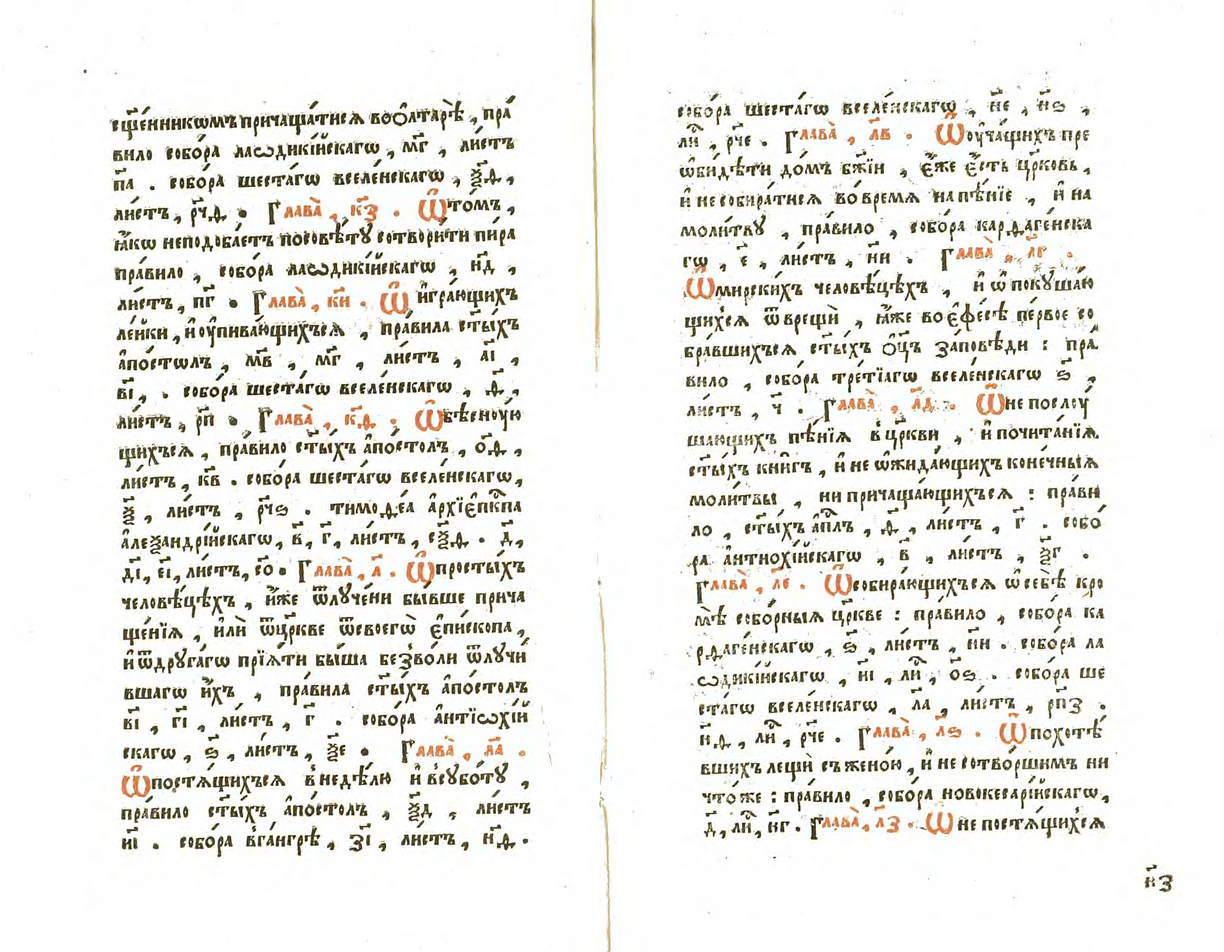 сщ҃е́нникѡмъ причаща́тисѧ во ѻ҆лтарѣ̀ , пра́
вило собо́ра лаѡдикі́йскагѡ , м҃г , ли́стъ
п҃а . собо́ра шеста́гѡ вселе́нскагѡ , ѯ҃ѳ ,
ли́стъ , рч҃ѳ . Глава̀ , к҃з . Ѿ то́мъ ,
ꙗ҆́кѡ неподоба́етъ посовѣ́тꙋ сотвори́ти пира
пра́вило , собо́ра лаѡдикі́йскагѡ , н҃д ,
ли́стъ , п҃г . Глава̀ , к҃и . Ѿ и҆гра́ющихъ
ле́йки , и҆ оу҆пива́ющихъсѧ , пра́вила ст҃ы́хъ
а҆по́столъ , м҃в , м҃г , ли́стъ , а҃і ,
в҃і , . собо́ра шеста́гѡ вселе́нскагѡ , ѳ҃ ,
ли́стъ , р҃п . Глава̀ , к҃ѳ . Ѿ бѣ́сноую
щихъсѧ , пра́вило ст҃ы́хъ а҆по́столъ , о҃ѳ ,
ли́стъ , к҃в . собо́ра шеста́гѡ вселе́нскагѡ,
ѯ҃ , ли́стъ , рч҃ѕ . тимоѳеа а҆рхїепкпа
а҆леѯандрі́йскагѡ, в҃, г҃, ли́стъ , сѯ҃ѳ . д҃,
д҃і, е҃і, ли́стъ, с҃о . Глава̀ , л҃ . Ѿ просты́хъ
человѣ́цѣхъ , и҆́же ѿлуче́ни бы́вше прича
ще́нїѧ , и҆лѝ ѿ цр҃кве ѿ своегѡ̀ є҆пи́скопа ,
и҆ ѿ дрꙋга́гѡ прїѧ́ти бы́ша без̾ во́ли ѿлꙋчи́
вшагѡ и҆́хъ , пра́вила ст҃ы́хъ а҆по́столъ
в҃і , г҃і , ли́стъ , г҃ . собо́ра а҆нтїѡхі́й
скагѡ , ѕ҃ , ли́стъ , ѯ҃е . Глава̀ , л҃а .
Ѿ постѧ́щихъсѧ в̾ недѣ́лю и҆ в̾сꙋбо́тꙋ ,
пра́вило ст҃ы́хъ а҆по́столъ , ѯ҃д , ли́стъ
и҃і . собо́ра в̾ га́нгрѣ , з҃і , ли́стъ , н҃ѳ .
собо́ра шеста́гѡ вселе́нскагѡ , н҃е , н҃ѕ ,
ли̑ , рч҃е . Глава̀ , л҃в . Ѿ оу҆ча́щихъ пре
ѡ҆би́дѣти до́мъ бж҃їи , є҆́же є҆́сть цр҃ковь ,
и҆ не собира́тисѧ во вре́мѧ на пѣ́нїе , и҆ на
моли́твꙋ , пра́вило , собо́ра карѳаге́нска
гѡ , е҃ , ли́стъ , н҃и . Глава̀ , л҃г .
Ѿ мирски́хъ человѣ́цѣхъ , и҆ ѡ҆ покꙋша́ю
щихсѧ ѿврещѝ , ꙗ҆́же во є҆фе́сѣ пе́рвое со
бра́вшихъсѧ ст҃ы́хъ ѻ҆ц҃ъ за́повѣди : пра́
вило , собо́ра тре́тїагѡ вселе́нскагѡ ѕ҃ ,
ли́стъ , ч҃ . Глава̀ , л҃д . Ѿ не послоу́
шающихъ пѣ́нїѧ в̾ цр҃кви , и҆ почита́нїѧ
ст҃ы́хъ кни́гъ , и҆ не ѡ҆жида́ющихъ коне́чныѧ
моли́твы , ни причаща́ющихъсѧ : пра́ви
ло , ст҃ы́хъ а҆пл҃ъ , ѳ҃ , ли́стъ , г҃ . собо́
ра а҆нтиохі́йскагѡ , в҃ , ли́стъ , ѯ҃г .
Глава̀ , л҃е . Ѿ собира́ющихъсѧ ѡ҆ себѣ̀ кро
мѣ̀ собо́рныѧ цр҃кве : пра́вило , собо́ра ка
рѳаге́нскагѡ , ѕ҃ , ли́стъ , н҃и . собо́ра ла
ѡдикі́йскагѡ , н҃і , ли̑ , о҃ѕ . собо́ра ше
ста́гѡ вселе́нскагѡ , л҃а , ли́стъ , рп҃з .
н҃ѳ , ли̑ , рч҃е . Глава̀ , л҃ѕ . Ѿ похотѣ́
вшихъ лещѝ съ жено́ю , и҆ не сотво́ршимъ ни
что́же : пра́вило , собо́ра новокесарі́йскагѡ ,
д҃, ли̑, н҃г . Глава̀ , л҃з . Ѿ не постѧ́щихсѧ
н҃з